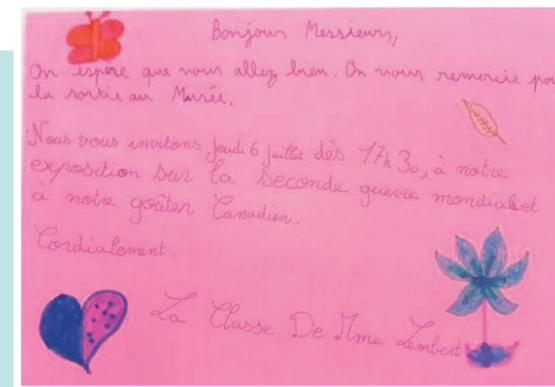 Bonjour Messieurs,
On espère que vous allez bien. On vous remercie pou
la sortie au Musée.
Nous vous invitons jeudi 6 juillet dès 17h30, à notre
exposition sur la seconde guerre mondiale et
à notre goûter Canadien.
Cordialement.
La Classe De Mme Lembert